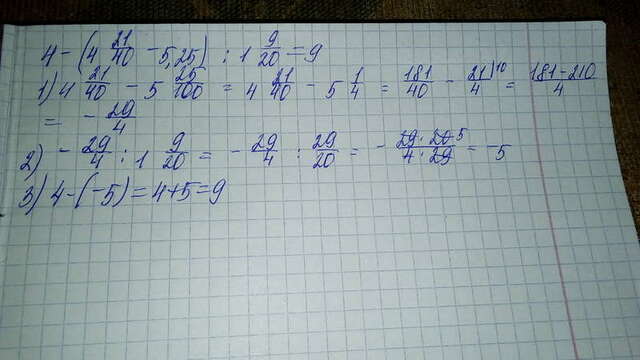 4 - (4 21/40 - 5,25) : 1 9/20 = 9
1) 4 21/40 - 5 25/100 = 4 21/40 - 5 1/4 = 181/40 - 21\10/4 = 181-210/4
= - 29/4
2) - 29/4 : 1 9/20 = - 29/4 : 29/20 = - 29·20 5/4·29 = -5
3) 4-(-5)=4+5=9